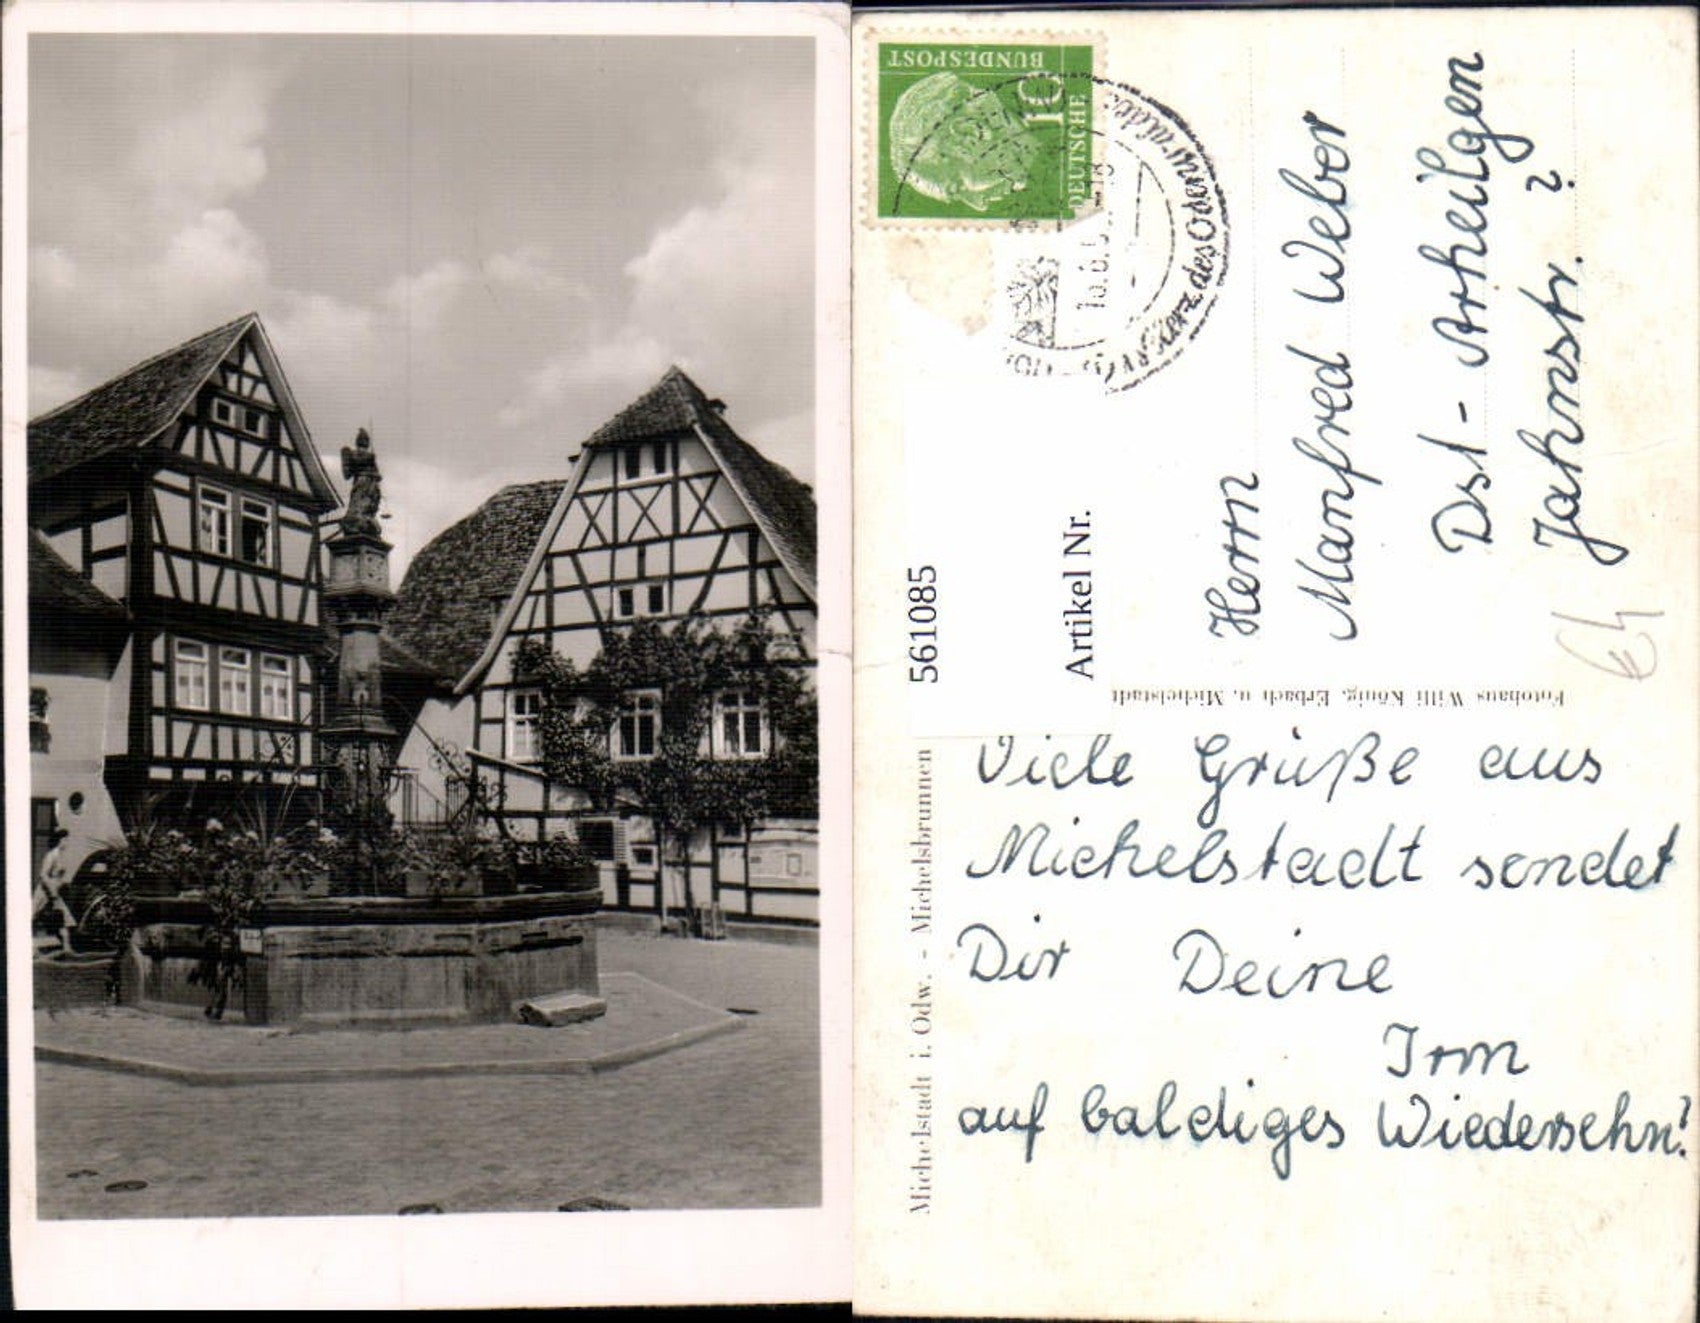 DEUTSCHE
BUNDESPOST
10
Herz des Odenwaldes
Herrn
Manfred Weber
Dst - Arheilgen
Jahnstr. ?
561085
Artikel Nr.
Fotohaus Willi König, Erbach u. Michelstadt
Michelstadt i. Odw. - Michelsbrunnen
Viele Grüße aus
Michelstadt sendet
Dir Deine
Irm
auf baldiges Wiedersehn!